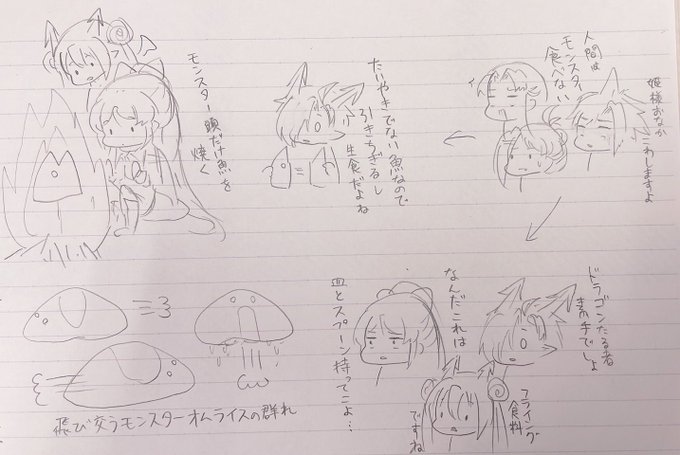 姫様おなか
こわしますよ
人間は
モンスター
食べない
たいやきでない魚なので
引きちぎるし
生食だよね
モンスター頭だけ魚を
焼く
ドラゴンたる者
素手でしょ
フライング
食料
ですね
なんだこれは
皿とスプーン持ってこよ…
飛び交うモンスターオムライスの群れ